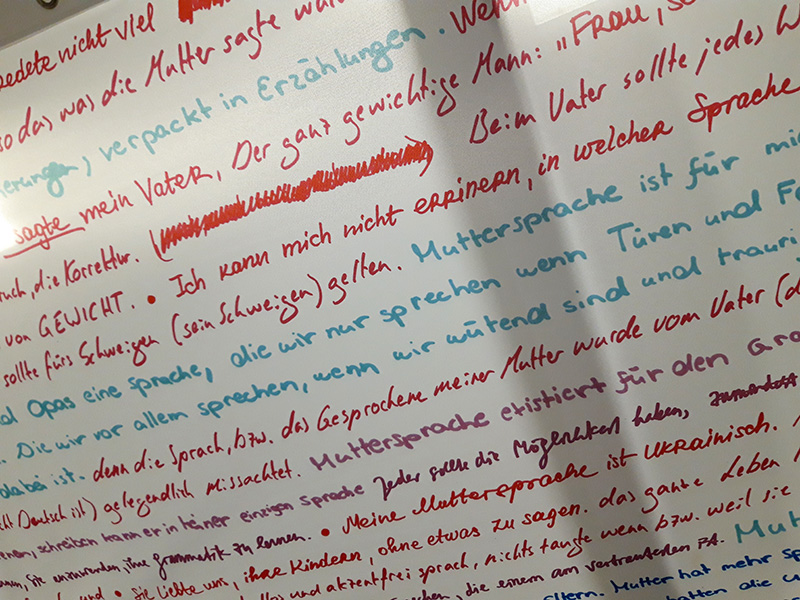 redete nicht viel
so das was die Mutter sagte
verpackt in Erzählungen. Wenn
sagte mein Vater, Der ganz gewichtige Mann: "Frau,
Beim Vater sollte jedes
die Korrektur.
von GEWICHT. • Ich kann mich nicht errinern, in welcher Sprache
sollte fürs Schweigen (sein Schweigen) gelten. Muttersprache ist für
Opas eine sprache, die wir nur sprechen wenn Türen und
Die wir vor allem sprechen, wenn wir wütend sind und
dabei ist. denn die Sprach, bzw. das Gesprochene meiner Mutter wurde vom Vater
Deutsch ist) gelegendlich missachtet. Muttersprache existiert für den
schreiben kann er in keiner einzigen Sprache Jeder sollte die Möglichkeit haben,
ihre grammatik zu lernen. • Meine Muttersprache ist Ukrainisch.
und • Sie liebte uns, ihre Kindern, ohne etwas zu sagen. das ganze Leben
und akzentfrei sprach, nichts taugte wenn bzw. weil sie
die einem am vertrautesten
Mutter hat mehr